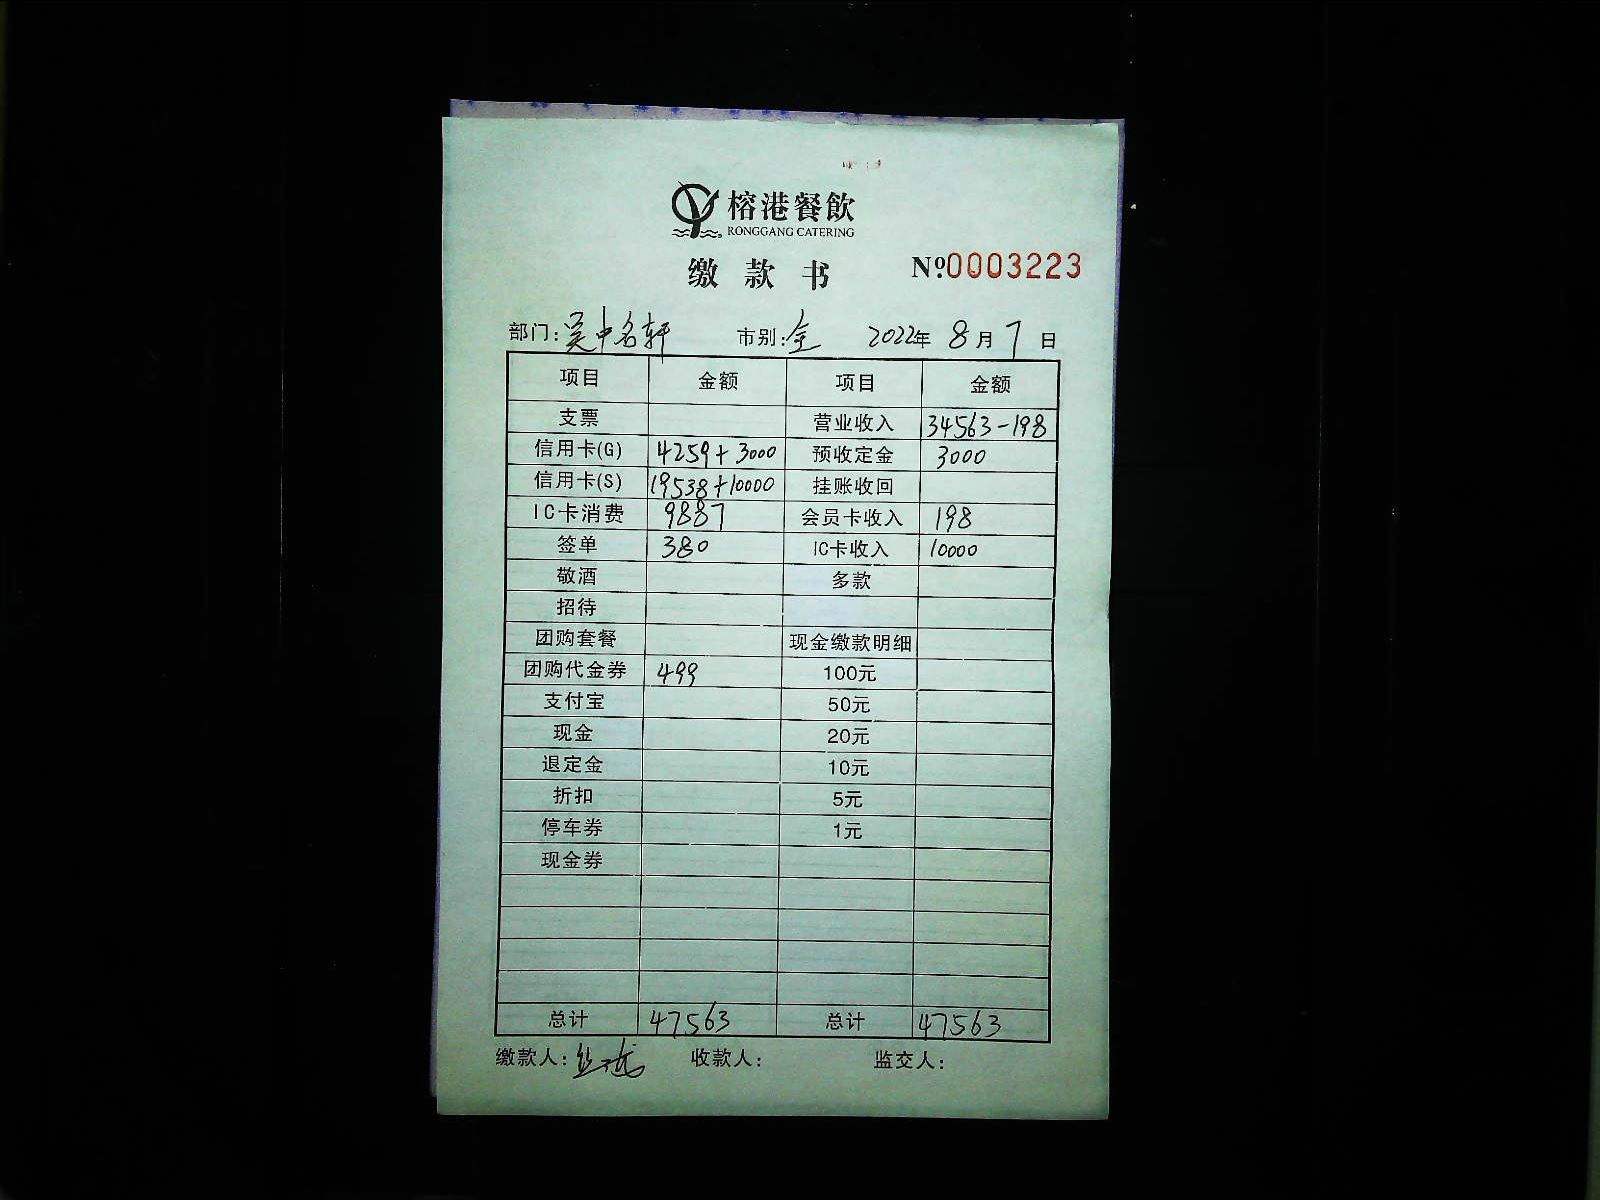 榕港餐飲
RONGGANG CATERING
缴款书 №0003223
部门:吴中名轩 市别:全 2022年 8月7日
项目 金额 项目 金额
支票 营业收入 34563-198
信用卡(G) 4259+3000 预收定金 3000
信用卡(S) 19538+10000 挂账收回
IC卡消费 9887 会员卡收入 198
签单 380 IC卡收入 10000
敬酒 多款
招待
团购套餐 现金缴款明细
团购代金券 499 100元
支付宝 50元
现金 20元
退定金 10元
折扣 5元
停车券 1元
现金券
总计 47563 总计 47563
缴款人: 收款人: 监交人: